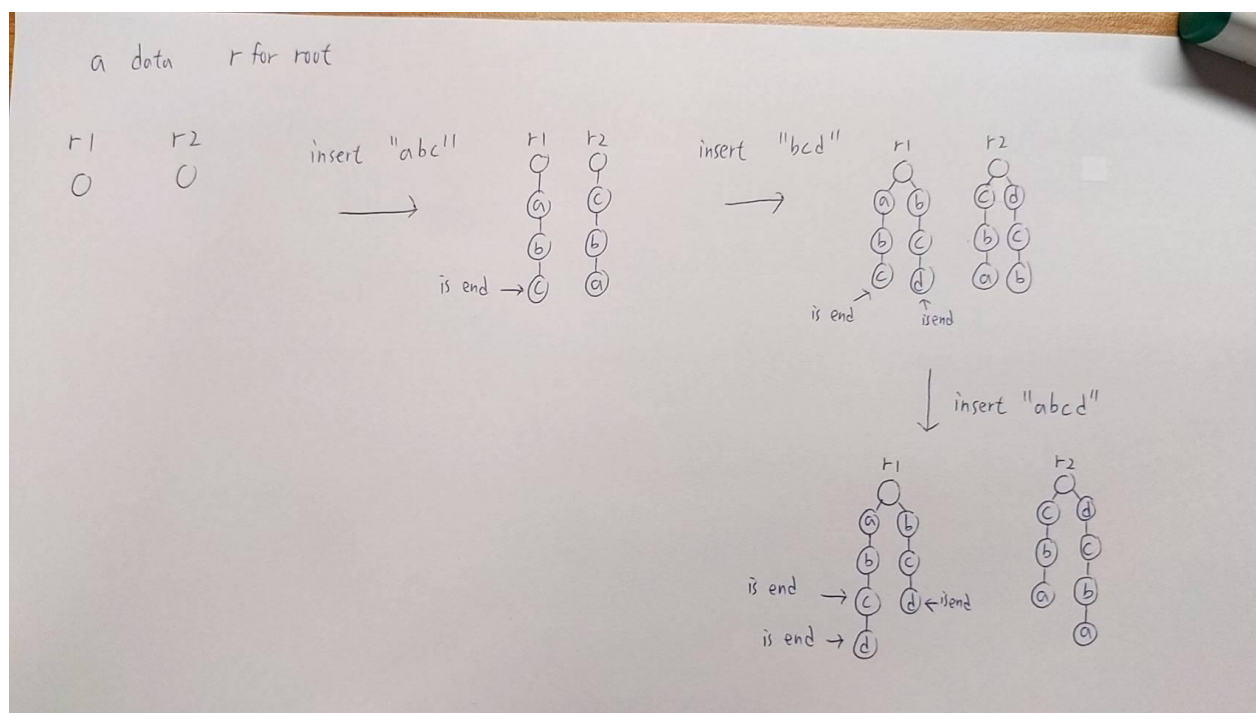 a data r for root
r1 r2
insert "abc"
r1 r2
a c
b b
is end → c a
insert "bcd"
r1 r2
a b c d
b c b c
c d a b
is end is end
insert "abcd"
r1 r2
a b c d
b c b c
is end → c d ← is end a b
is end → d a